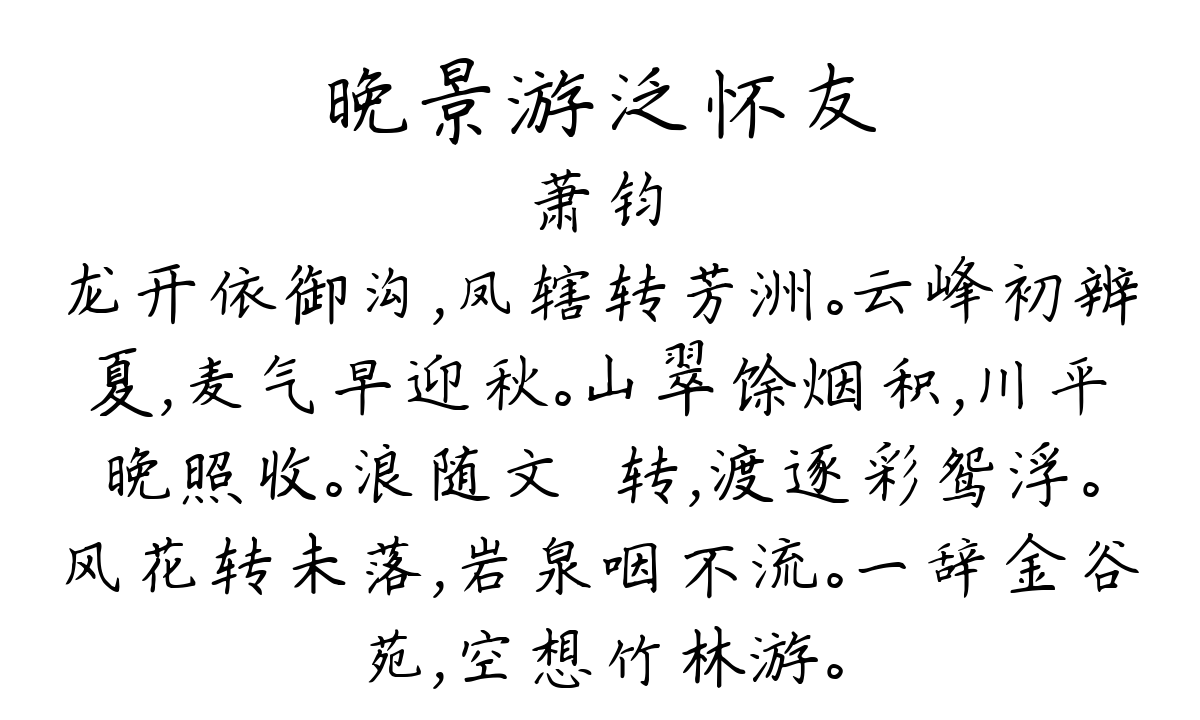 晚景游泛怀友
萧钧
龙开依御沟,凤辖转芳洲。云峰初辨
夏,麦气早迎秋。山翠馀烟积,川平
晚照收。浪随文 转,渡逐彩鸳浮。
风花转未落,岩泉咽不流。一辞金谷
苑,空想竹林游。